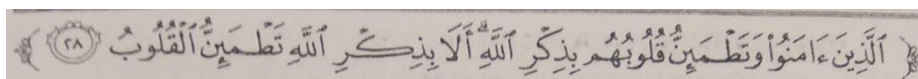 ٱلَّذِينَ ءَامَنُوا۟ وَتَطْمَئِنُّ قُلُوبُهُم بِذِكْرِ ٱللَّهِ ۗ أَلَا بِذِكْرِ ٱللَّهِ تَطْمَئِنُّ ٱلْقُلُوبُ ٢٨